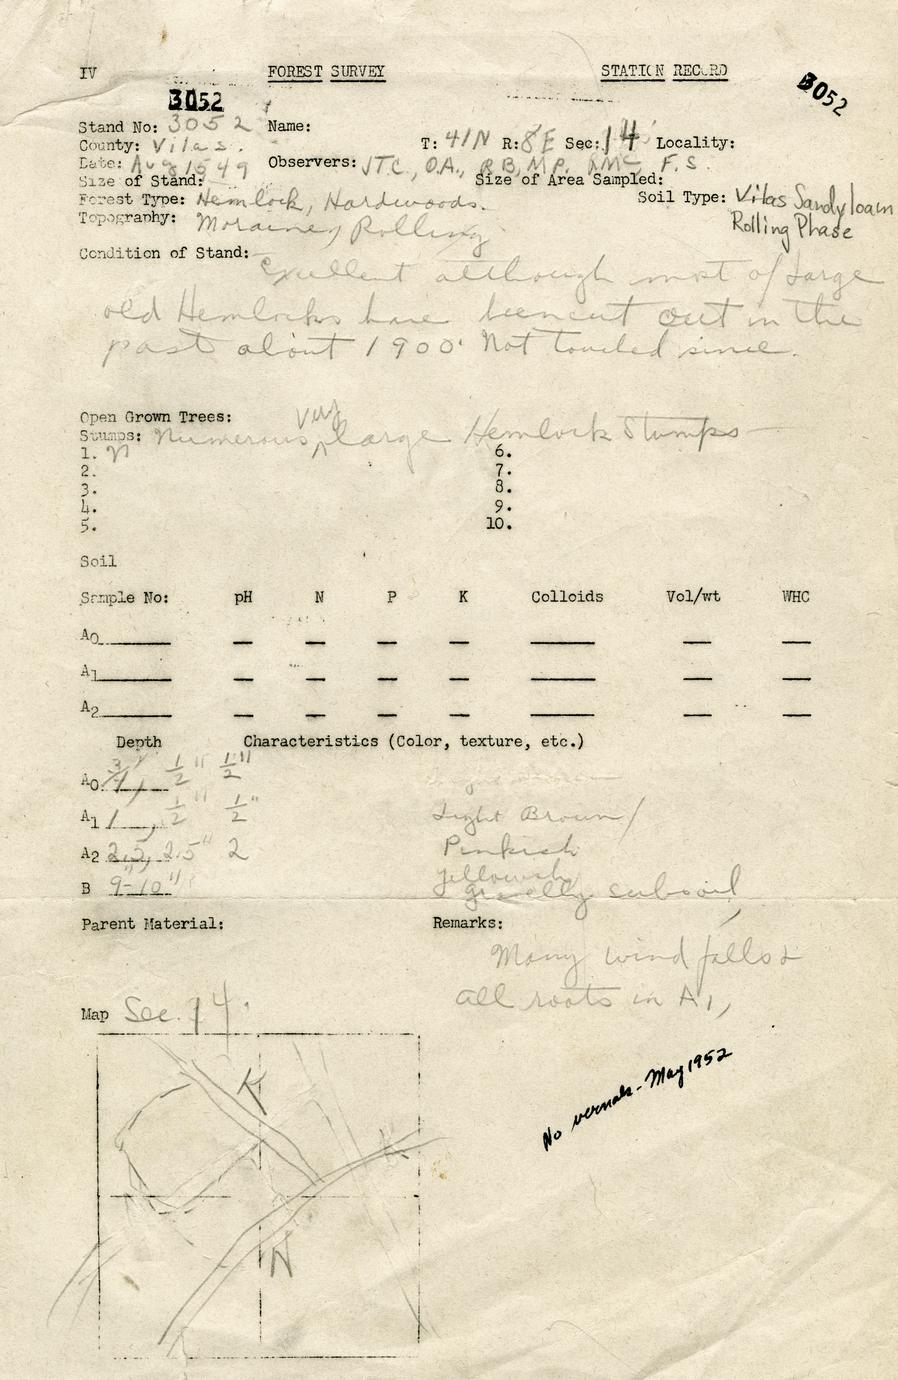 IV FOREST SURVEY STATION RECORD
3052 3052
Stand No: 3052 Name:
County: Vilas. T: 41N R: 8E Sec: 14 Locality:
Date: Aug 15 49 Observers: JTC., O.A., R.B, M.P. RMC F.S.
Size of Stand: Size of Area Sampled:
Forest Type: Hemlock, Hardwoods. Soil Type: Vilas Sandy loam
Topography: Moraine, Rolling Rolling Phase
Condition of Stand: Exellent although most of large
old Hemlocks have been cut out in the
past about 1900. Not touched since.
Open Grown Trees:
Stumps: Numerous very large Hemlock Stumps
1. N 6.
2. 7.
3. 8.
4. 9.
5. 10.
Soil
Sample No: pH N P K Colloids Vol/wt WHC
A0
A1
A2
Depth Characteristics (Color, texture, etc.)
A0 3/4", 1/2" 1/2"
A1 1, 1/2" 1/2" Light Brown
A2 2.5, 2.5" 2 Pinkish
Yellowish
B 9-10" gravelly subsoil
Parent Material: Remarks:
Many windfalls
all roots in A1,
Map Sec. 14
No vernals - May 1952
K
N